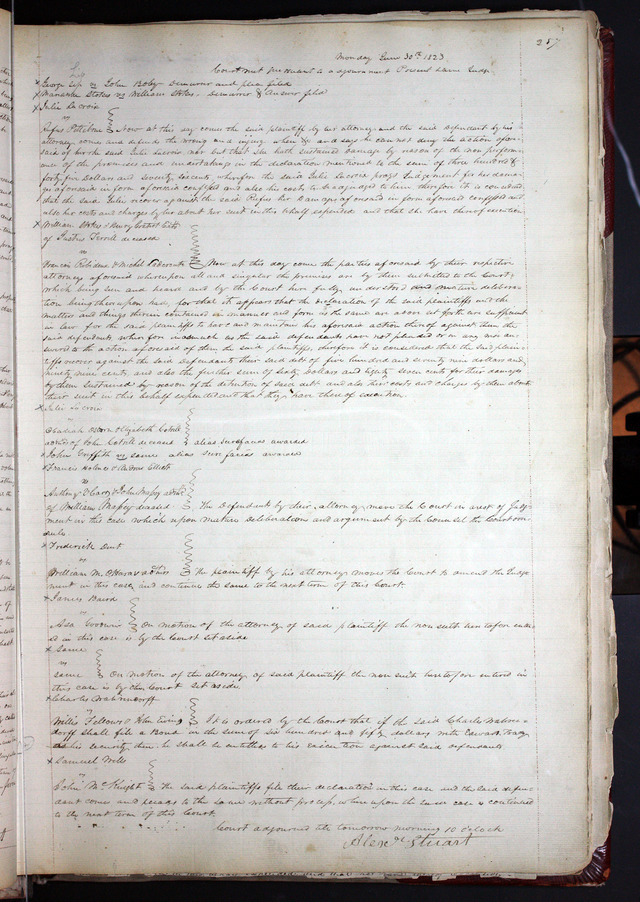 257
Monday June 30th 1823
Court met pursuant to adjournment Present same Judge
x George Sip vs John Boley Demurrer and plea filed
x Manasha Stokes vs William Stokes - Demurrer & Answer filed
x Julie Lacroix
vs
Rufus Pettibone Now at this day comes the said plaintiff by her attorney and the said defendant by his
attorney comes and defends the wrong and injury when &c and says he can not deny the action afore-
said of her the said Julie Lacroix nor but that She hath sustained damage by reason of the non performa-
nce of the promises and undertakings in the declaration mentioned to the sum of three hundred &
forty five Dollars and seventy six cents, wherefore the said Julie Lacroix prays Judgement for her dama-
ges aforesaid in form aforesaid confessed and also his costs to be adjudged to him therefore it is considered
that the said Julie recover against the said Rufus her damages aforesaid in form aforesaid confessed and
also her costs and charges by her about her suit in this behalf expended and that she have thereof execution
x William Stokes & Henry
of Justus Terrell deceased
vs
Francois Robidoux & Michel Now at this day come the parties aforesaid by their respective
attorneys aforesaid whereupon all and singular the premises are by them submitted to the Court,
which being seen and heard and by the Court here fully understood and mature delibera-
tion being thereupon had, for that it appears that the declaration of the said plaintiffs and the
matters and things therein contained in manner and form as the same are above set forth are sufficient
in law for the said plaintiffs to have and maintain his aforesaid action thereof against them the
said defendants wherefore inasmuch as the said defendants have not pleaded or in any way an-
swered to the action aforesaid of them the said plaintiffs, therefore it is considered that the said plain-
tiffs recover against the said defendants their said debt of five hundred and seventy nine dollars and
ninety nine cents and also the further sum of Sixty Dollars and Eighty seven cents for their damages
by them sustained by reason of the detention of said debt and also their costs and charges by them about
their suit in this behalf expended and that they have thereof execution.
x Julie Lacroix
vs
& Elizabeth Cotell
admrs of John Cotell deceased alias Sure facias awarded
x John Griffith vs same alias sure facias awarded
x Francis Holmes & Andrew Elliott
vs
Anthony & John admrs
of William deceased The Defendants by their attorney move the Court in arrest of Judg-
ment in this case which upon mature deliberation and argument by the Counsel the Court over-
rules
x Frederick Dent
vs
William M. OHaras admrs The plaintiff by his attorneys moves the Court to amend the Judge-
ment in this case, and continues the same to the next term of this Court.
x James Baird
vs
Asa On motion of the attorney of said plaintiff the non suit heretofore enter-
ed in this case is by the Court set aside
x Same
vs
same On motion of the attorney of said plaintiff the non suit heretofore entered in
this case is by the Court set aside.
x Charles Wahrendorff
vs
Willis Fellows & John It is ordered by the Court that if the said Charles Wahren-
dorff shall file a Bond in the sum of six hundred and fifty dollars with Edward Tracy
as his security then he shall be entitled to his execution against said defendants
x Samuel Wells
vs
John McKnight The said plaintiffs file their declaration in this case and the said defen-
dant comes and pleads to the same without process, where upon the same case is continued
to the next term of this Court
Court adjourned till tomorrow morning 10 oclock
Alexr Stuart